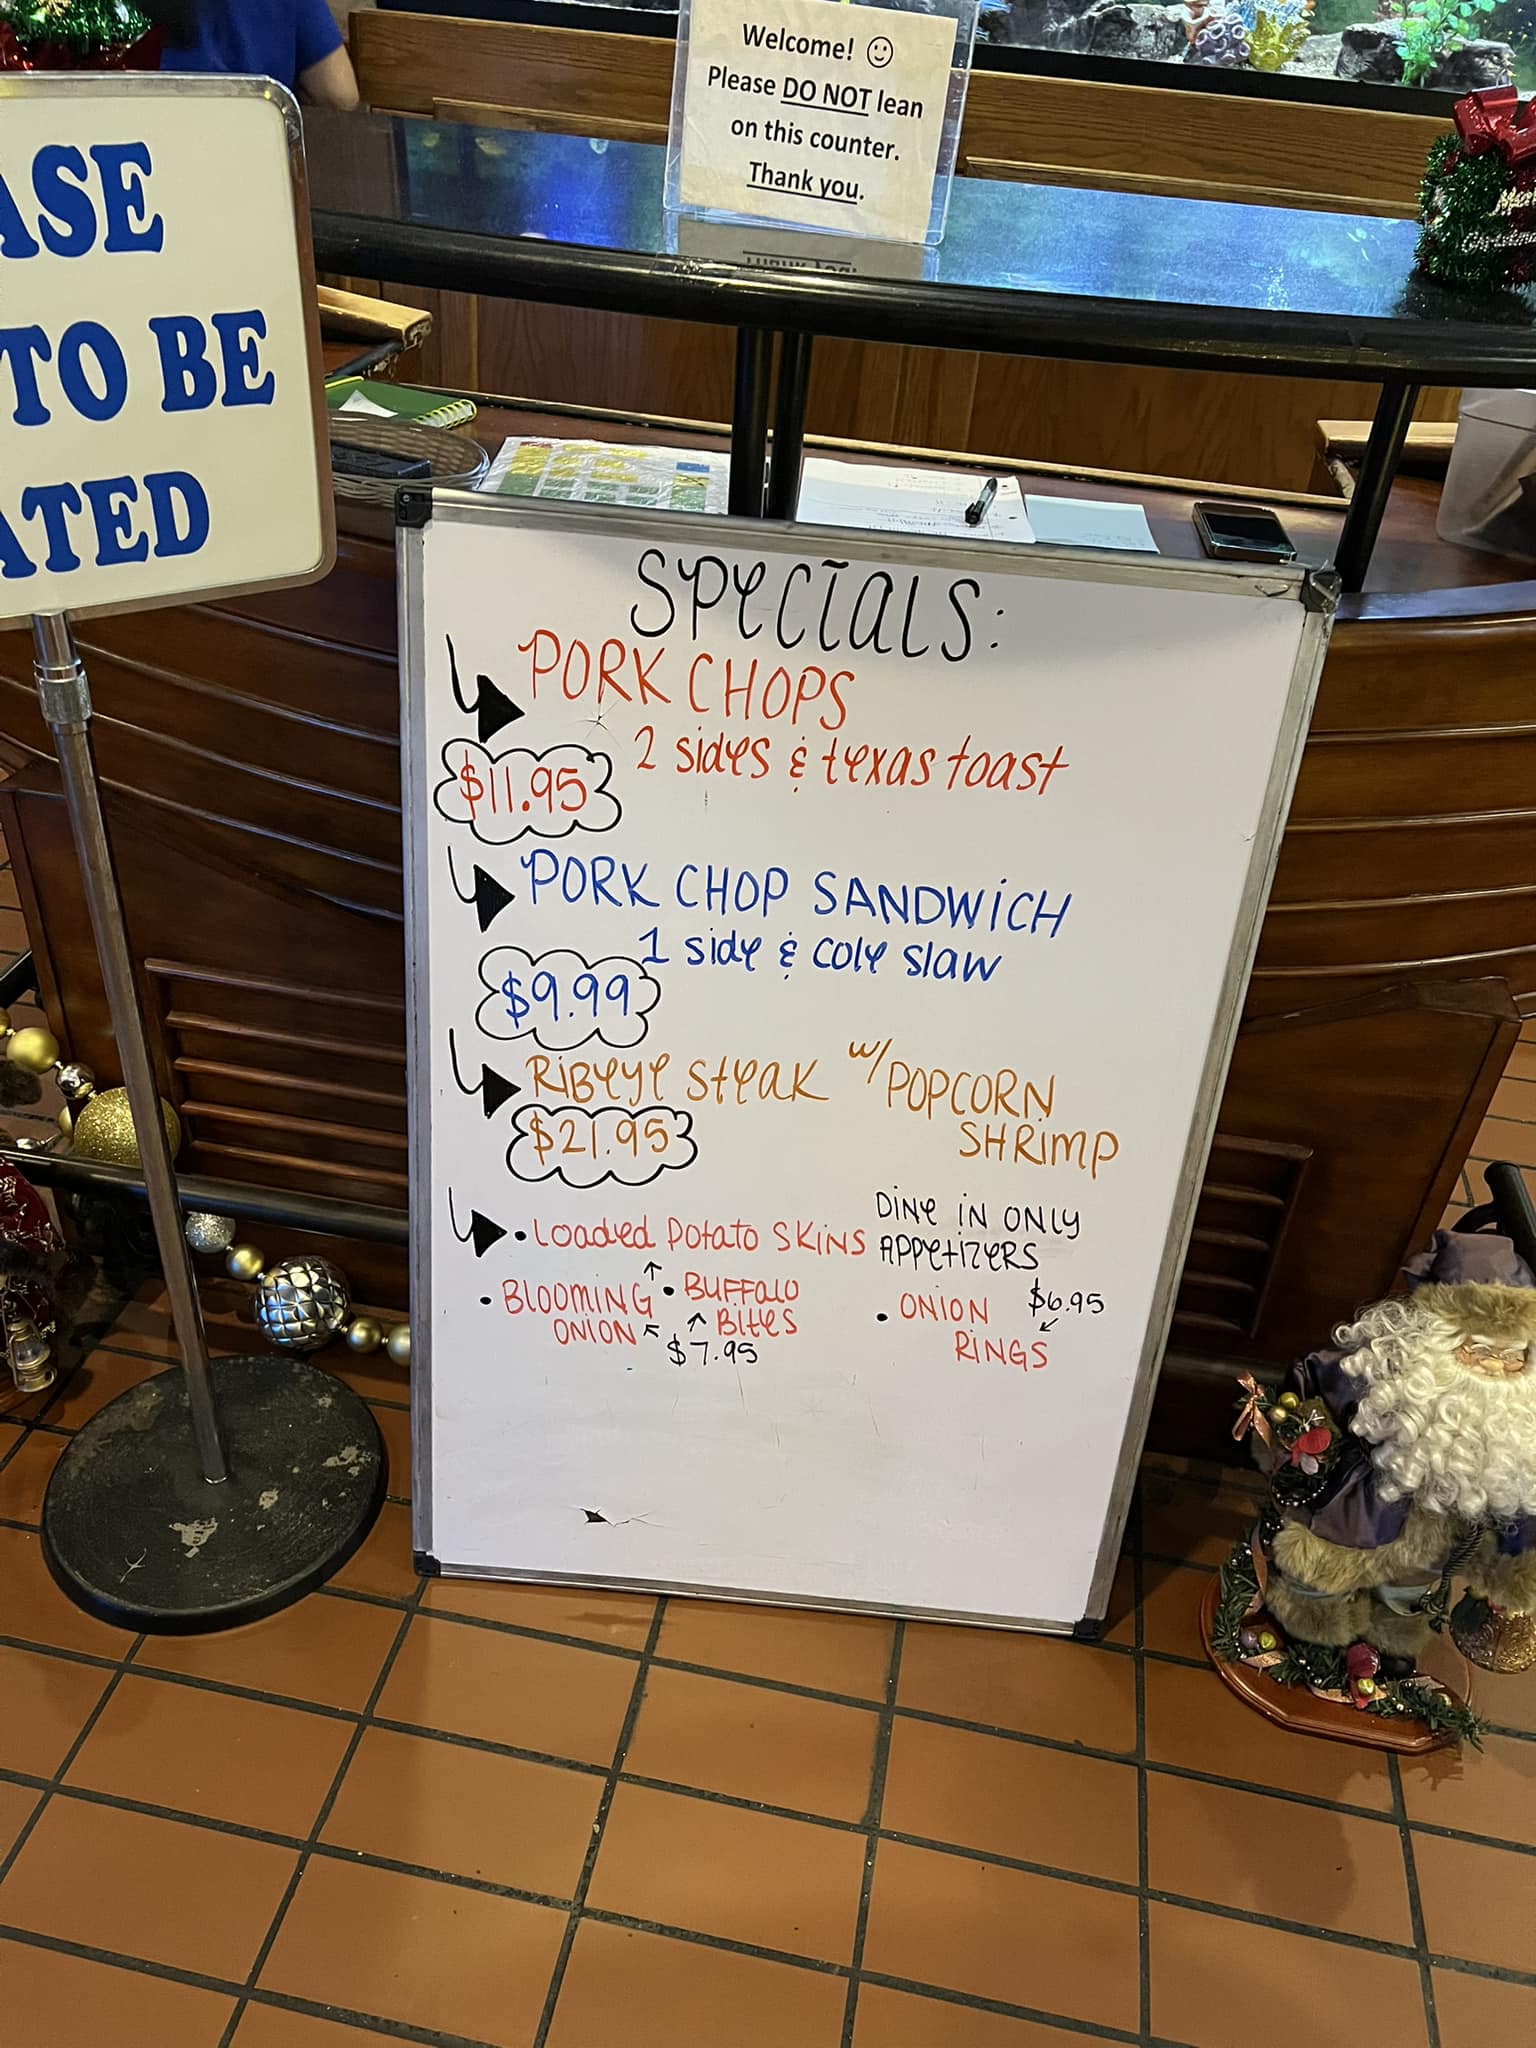 Welcome! ☺
Please DO NOT lean
on this counter.
Thank you.
ASE
TO BE
ATED
SPECIALS:
PORK CHOPS
2 sides & texas toast
$11.95
PORK CHOP SANDWICH
1 side & cole slaw
$9.99
RIBeye steak w/ POPCORN
SHRIMP
$21.95
• Loaded Potato SKINS
DINE IN ONLY
APPETIZERS
• BLOOMING
ONION
• BUFFALO
BITES
$7.95
• ONION
RINGS
$6.95